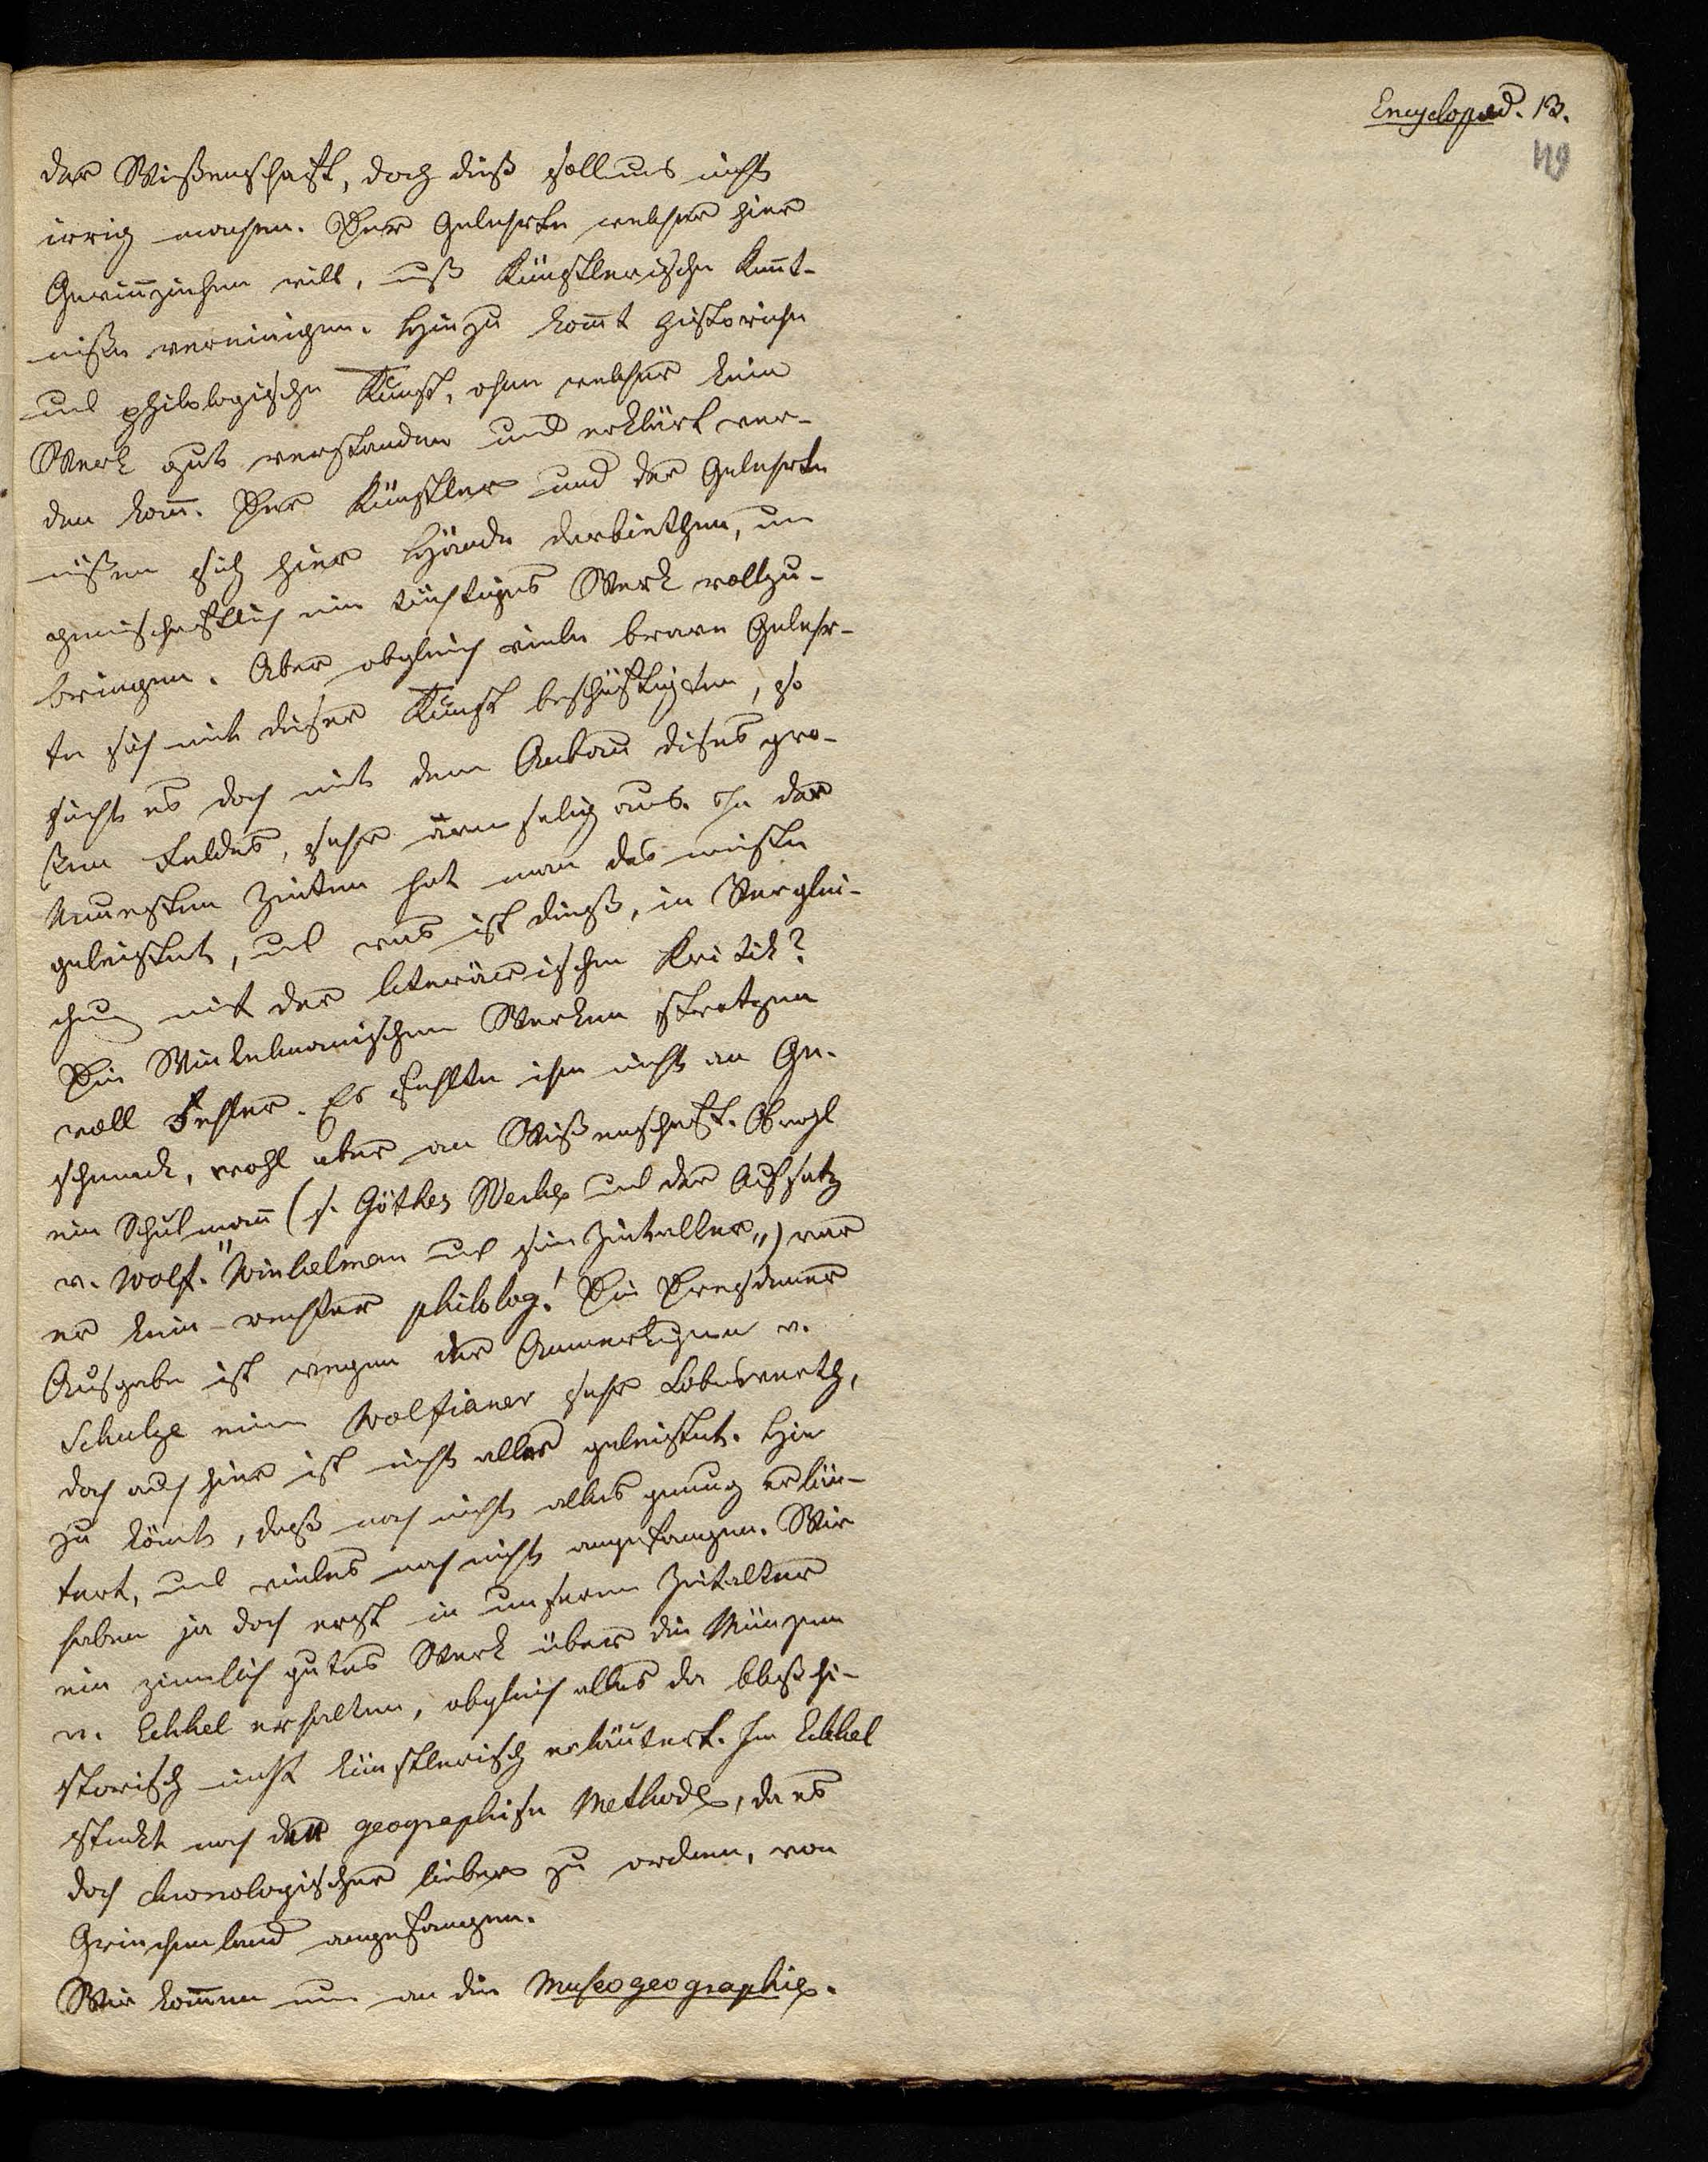 Encyclopæd. 13.
49
der Wißenschaft, doch dieß soll uns nicht
irrig machen. Der Gelehrte welcher hier
Gewinn ziehen will, muß künstlerische Kennt-
niße vereinigen. Hinzu kom̅t historische
und philologische Kunst, ohne welcher kein
Werk gut verstanden und erklärt wer-
den kan̅. Der Künstler und der Gelehrte
müßen sich hier Hände darbiethen, um
gemeinschaftlich ein tüchtiges Werk vollzu-
bringen. Aber obgleich viele brave Gelehr-
te sich mit dieser Kunst beschäftigten, so
sieht es doch mit dem Anbau dieses gro-
ßen Feldes, sehr armselig aus. In der
Neuesten Zeiten hat man das meiste
geleistet, und was ist dieß, in Verglei-
chung mit der literärischen Kritik?
Die Winkelmanischen Werken strotzen
voll Fehler. Es fehlte ihm nicht an Ge-
schmack, wohl aber an Wißenschaft. Obwohl
ein Schulman̅ (s. Göthes Werke und der Aufsatz
v. Wolf. "Winkelman und sein Zeitalter„) war
er kein rechter philolog! Die Dresdener
Ausgabe ist wegen der Anmerkungen v.
Schulze einem Wolfianer sehr Lobenswerth,
doch auch hier ist nicht alles geleistet. Hin
zu kömt, daß noch nicht alles genug erläu-
tert, und vieles noch nicht angefangen. Wir
haben ja doch erst in unserem Zeitalter
ein ziemlich gutes Werk über die Münzen
v. Eckhel erhalten, obgleich alles da bloß hi-
storisch nicht künstlerisch erläutert. Im Eckhel
steckt noch der geographische Methode, da es
doch chronologischer lieber zu ordnen, von
Griechenland angefangen.
Wir kom̅en nun an die Museogeographie.